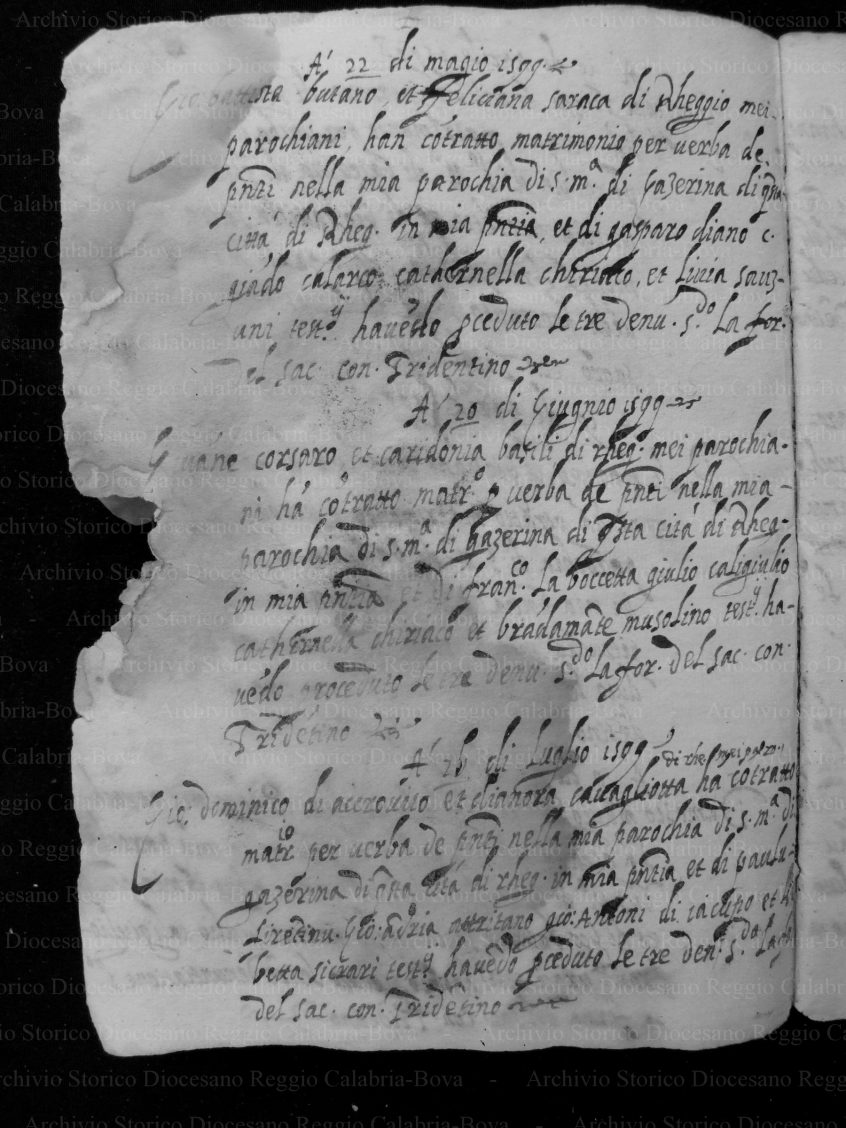 A' 22 di magio 1599
Gio: battista butano, et Feliciana saraca di Rheggio mei
parochiani, han cōtratto matrimonio per verba de
pn̄ti nella mia parochia di S. M.ª di gazerina di q̄sta
città di Rheg. in mia pn̄tia, et di gasparo diano
calarco, catherinella chiriaco, et livia sauz-
ani test.ij havēdo pceduto le tre denu. s.do la for.
del sac. con. Tridentino
A' 20 di Giugnio 1599
Giuāne corsaro et caridonia basili di rheg. mei parochia-
ni hā cōtratto matr.o p verba de pn̄ti nella mia
parochia di S. M.ª di gazerina di q̄sta cità di Rheg.
in mia pn̄tia et di fran.co La boccetta giulio caligiulio
catherinella chiriaco et bradamāte musolino test.ij ha-
vēdo proceduto le tre denu. s.do la for. del sac. con.
Tridētino
A' di luglio 1599
di rheg. mei paro.
Gio: dominico di accrovito et dianora cavagliotta ha cōtratto
matr.o per verba de pn̄ti nella mia parochia di S. M.ª di
gazerina di q̄sta cità di rheg. in mia pn̄tia et di paulu
Liretinu. Gio: adria attritano gio: Antoni di iacupo et
betta sicrari test.ij havēdo pceduto le tre den. s.do la
del sac. con. Tridētino